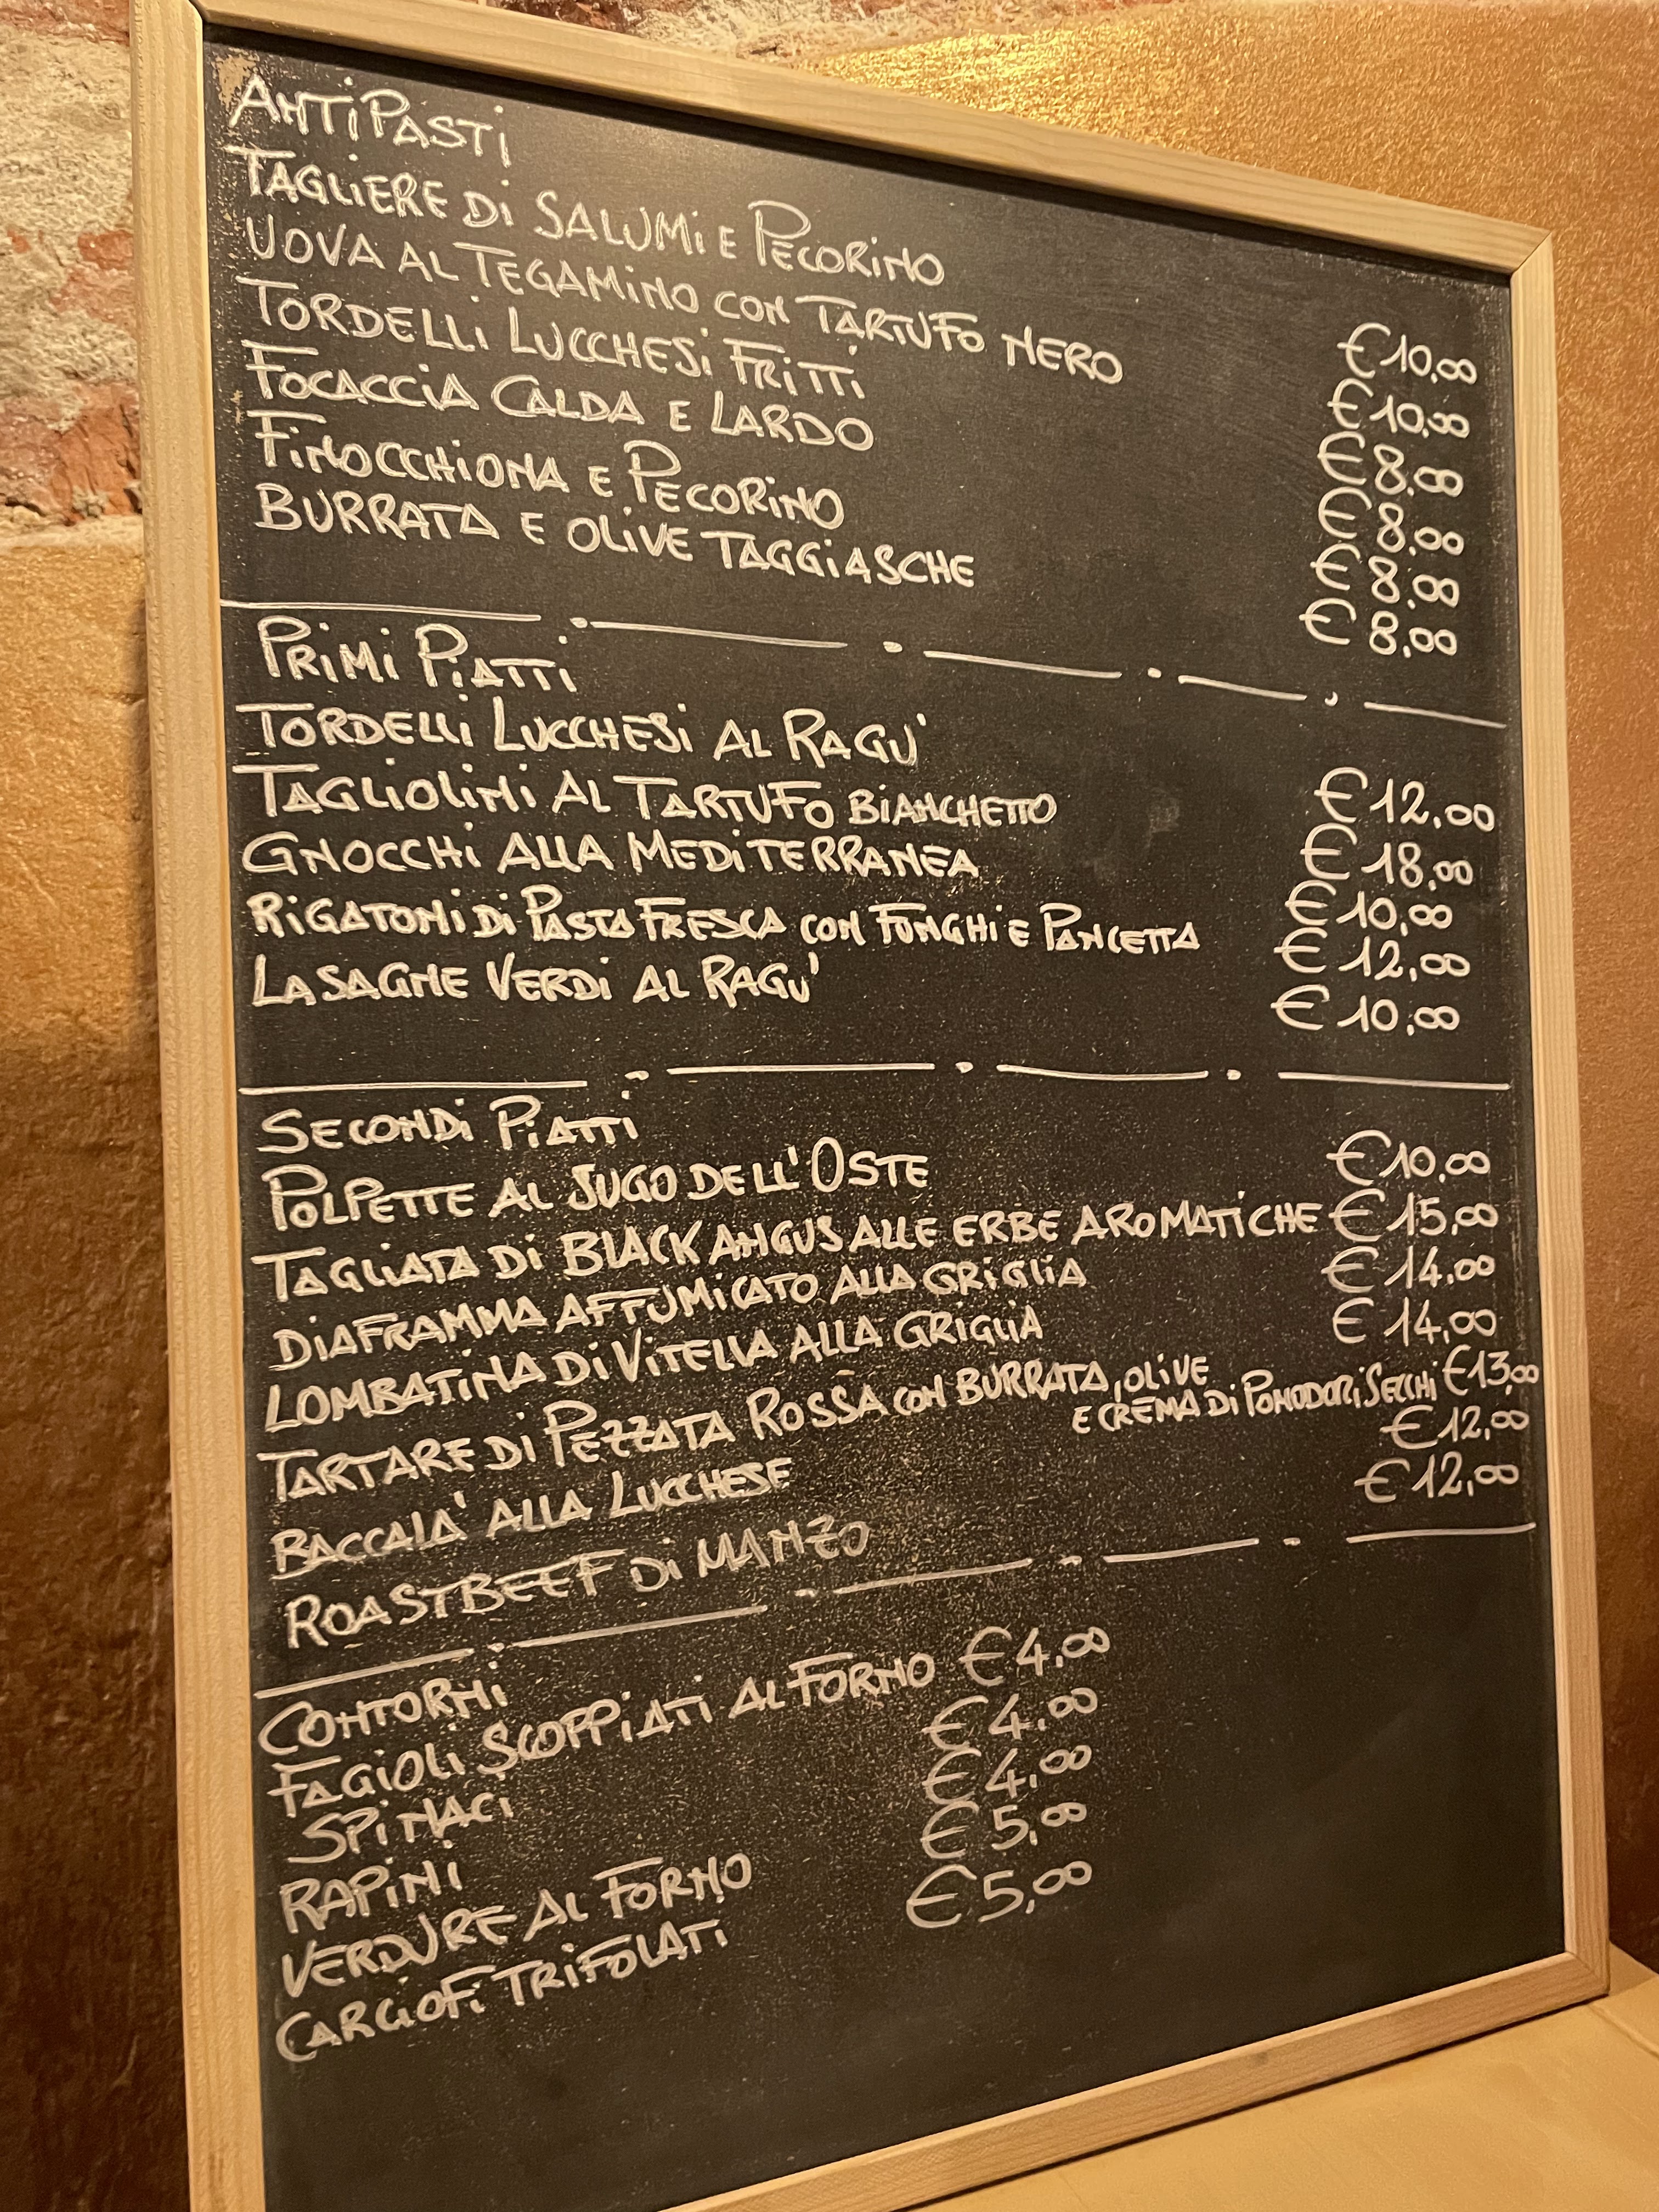 ANTIPASTI
TAGLIERE DI SALUMI E PECORINO €10,00
UOVA AL TEGAMINO CON TARTUFO NERO €10,00
TORDELLI LUCCHESI FRITTI €8,00
FOCACCIA CALDA E LARDO €8,00
FINOCCHIONA E PECORINO €8,00
BURRATA E OLIVE TAGGIASCHE €8,00
PRIMI PIATTI
TORDELLI LUCCHESI AL RAGU' €12,00
TAGLIOLINI AL TARTUFO BIANCHETTO €18,00
GNOCCHI ALLA MEDITERRANEA €10,00
RIGATONI DI PASTA FRESCA CON FUNGHI E PANCETTA €12,00
LASAGNE VERDI AL RAGU' €10,00
SECONDI PIATTI
POLPETTE AL SUGO DELL'OSTE €10,00
TAGLIATA DI BLACK ANGUS ALLE ERBE AROMATICHE €15,00
DIAFRAMMA AFFUMICATO ALLA GRIGLIA €14,00
LOMBATINA DI VITELLA ALLA GRIGLIA €14,00
TARTARE DI PEZZATA ROSSA CON BURRATA, OLIVE
E CREMA DI POMODORI SECCHI €13,00
BACCALA' ALLA LUCCHESE €12,00
ROASTBEEF DI MANZO €12,00
CONTORNI
FAGIOLI SCOPPIATI AL FORNO €4,00
SPINACI €4,00
RAPINI €4,00
VERDURE AL FORNO €5,00
CARCIOFI TRIFOLATI €5,00